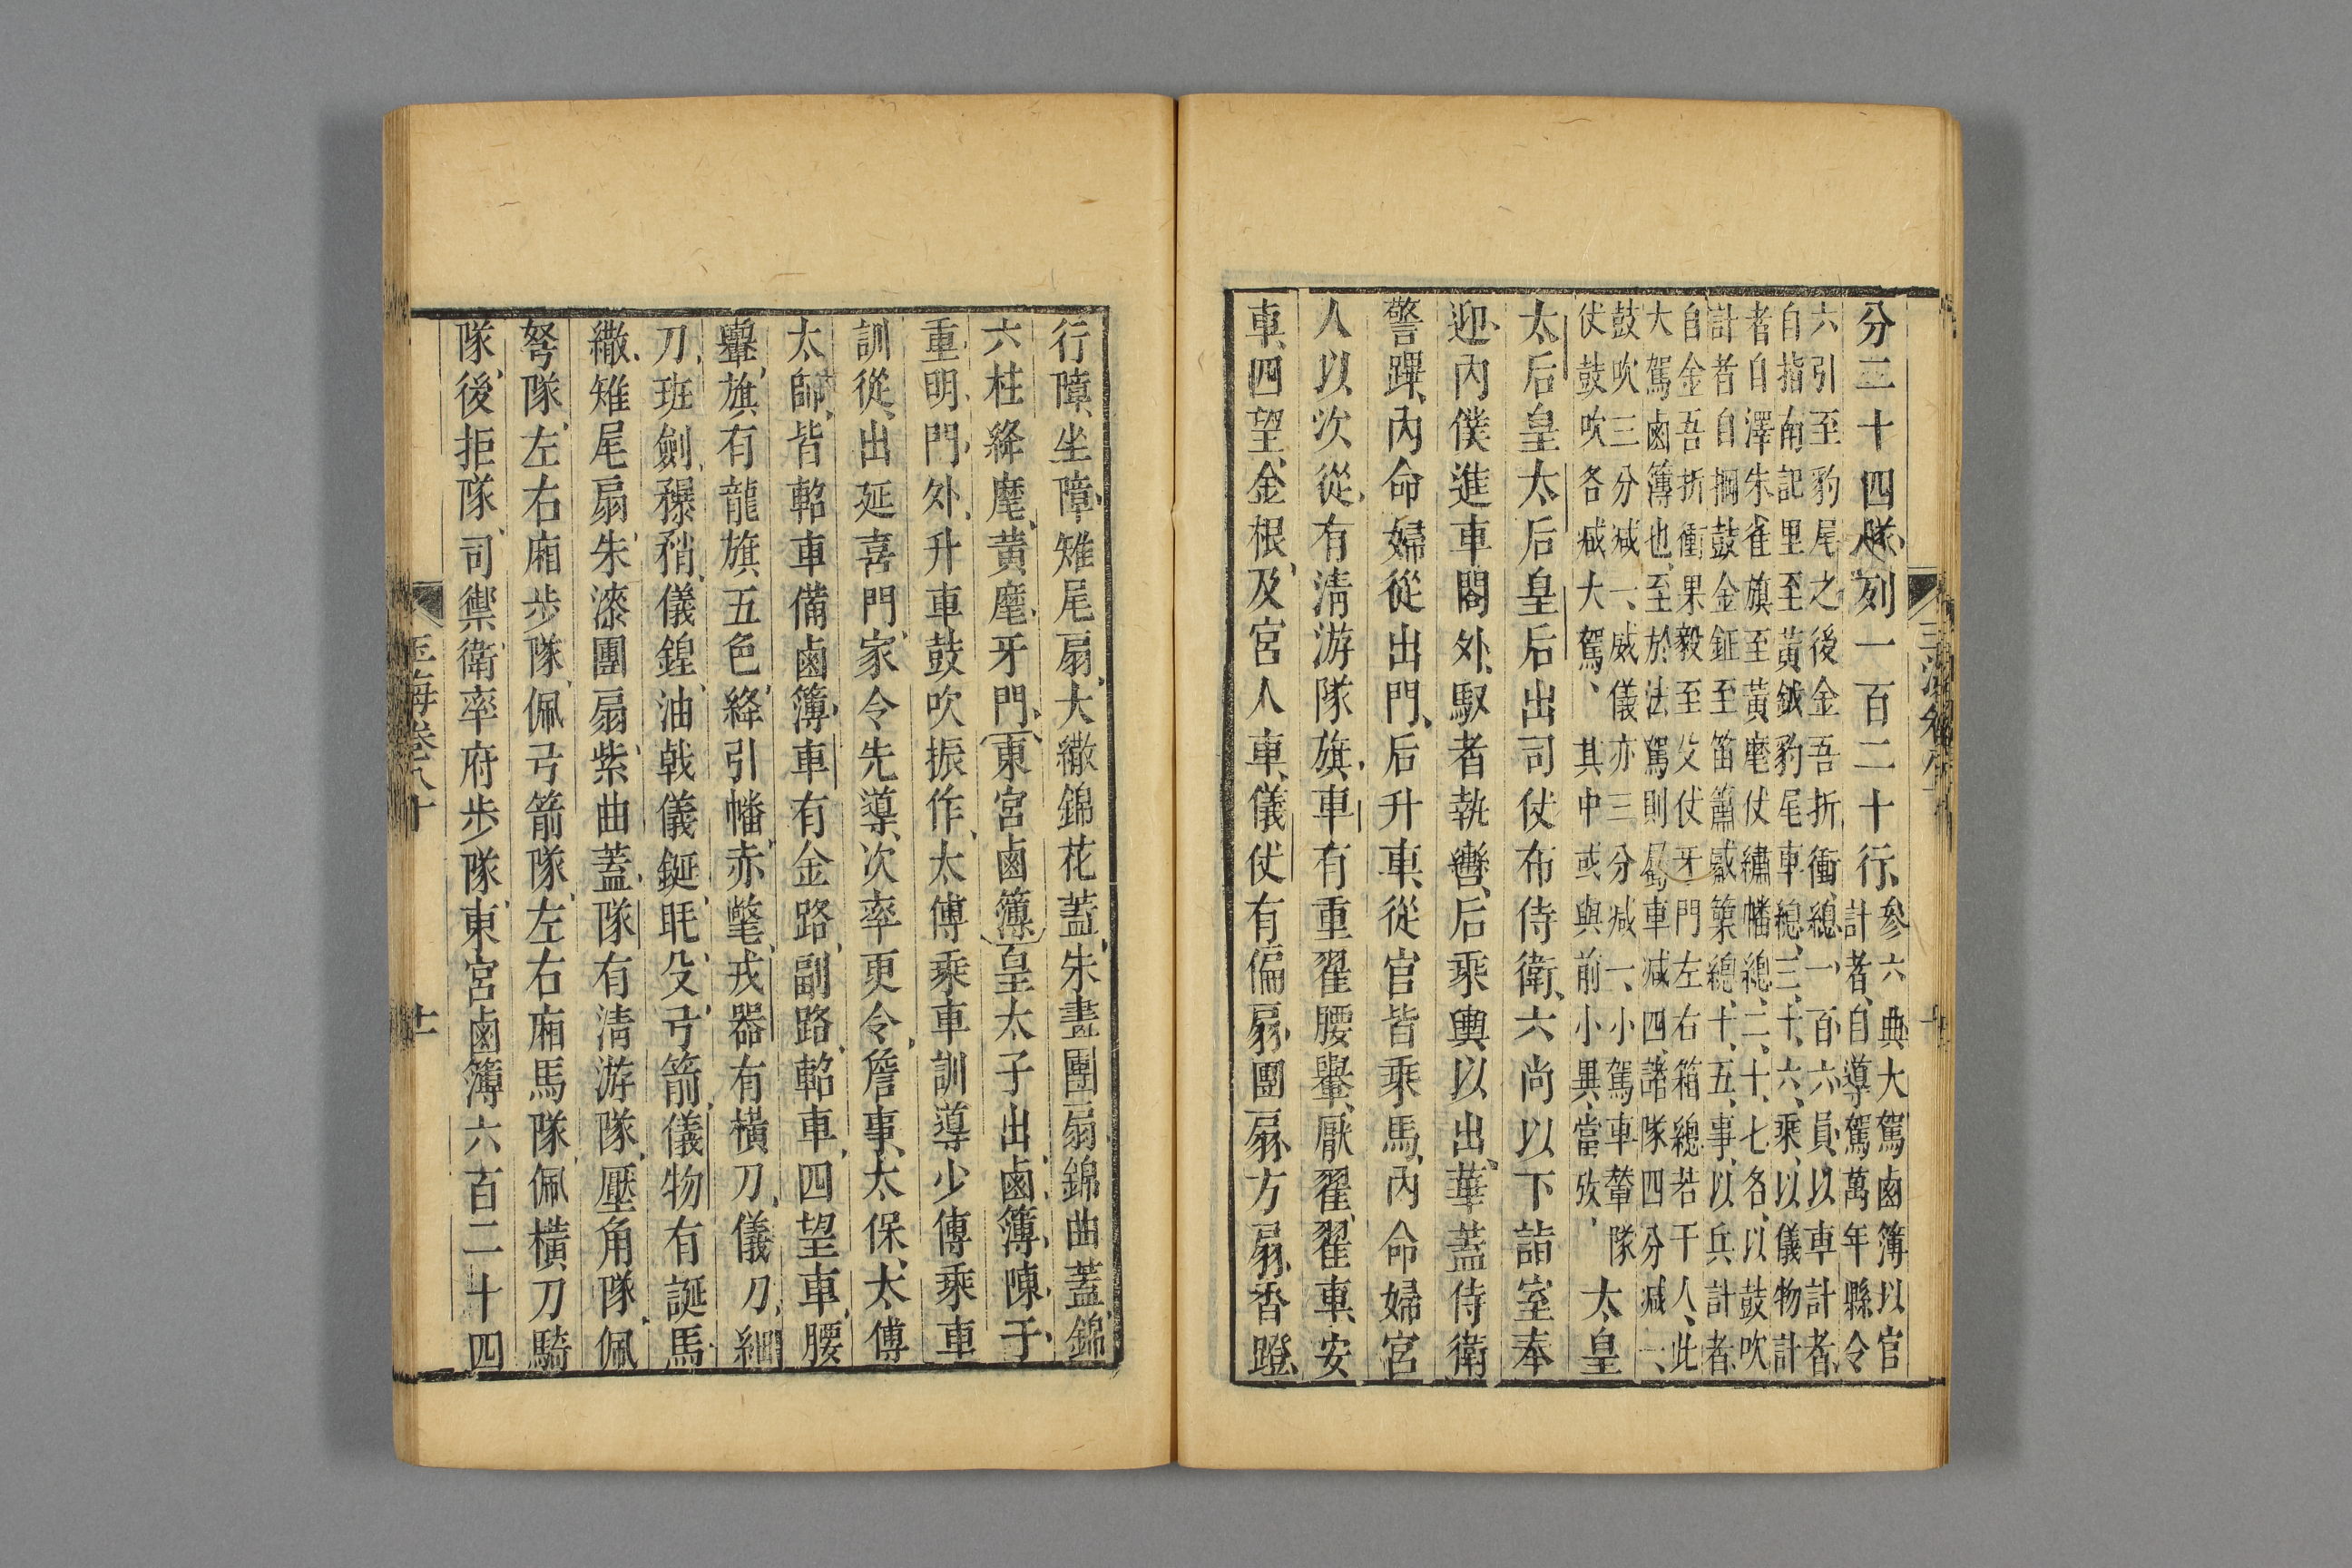 分三十四隊列一百二十行參六典大駕鹵簿以官
計者自導駕萬年縣令
六引至豹尾之後金吾折衝總一百六員以車計者
自指南記里至黃鉞豹尾車總三十六乘以儀物計
者自澤朱雀旗至黃麾仗繡幡總二十七各以鼓吹
計者自掆鼓金鉦至笛簫觱篥總十五事以兵計者
自金吾折衝果毅至殳仗牙門左右箱總若干人此
大駕鹵簿也至於法駕則屬車減四諸隊四分減一
鼓吹三分減一威儀亦三分減一小駕車輦隊
仗鼓吹各减大駕其中或與前小異當攷太皇
太后皇太后皇后出司仗布侍衛六尚以下詣室奉
迎內僕進車閤外馭者執轡后乘輿以出華蓋侍衛
警蹕內命婦從出門后升車從官皆乘馬內命婦宮
人以次從有清游隊旗車有重翟腰轝厭翟翟車安
車四望金根及宮人車儀仗有偏扇團扇方扇香蹬
行障坐障雉尾扇大繖錦花蓋朱畫團扇錦曲蓋錦
六柱絳麾黃麾牙門東宮鹵簿皇太子出鹵簿陳于
重明門外升車鼓吹振作太傅乘車訓導少傅乘車
訓從出延喜門家令先導次率更令詹事太保太傅
太師皆軺車備鹵簿車有金路副路軺車四望車腰
轝旗有龍旗五色絳引幡赤氅戎器有橫刀儀刀細
刀班劍槊矟儀鍠油戟儀鋋毦殳弓箭儀物有誕馬
繖雉尾扇朱漆團扇紫曲蓋隊有清游隊壓角隊佩
弩隊左右廂步隊佩弓箭隊左右廂馬隊佩橫刀騎
隊後拒隊司禦衛率府步隊東宮鹵簿六百二十四
玉海卷八十
十一